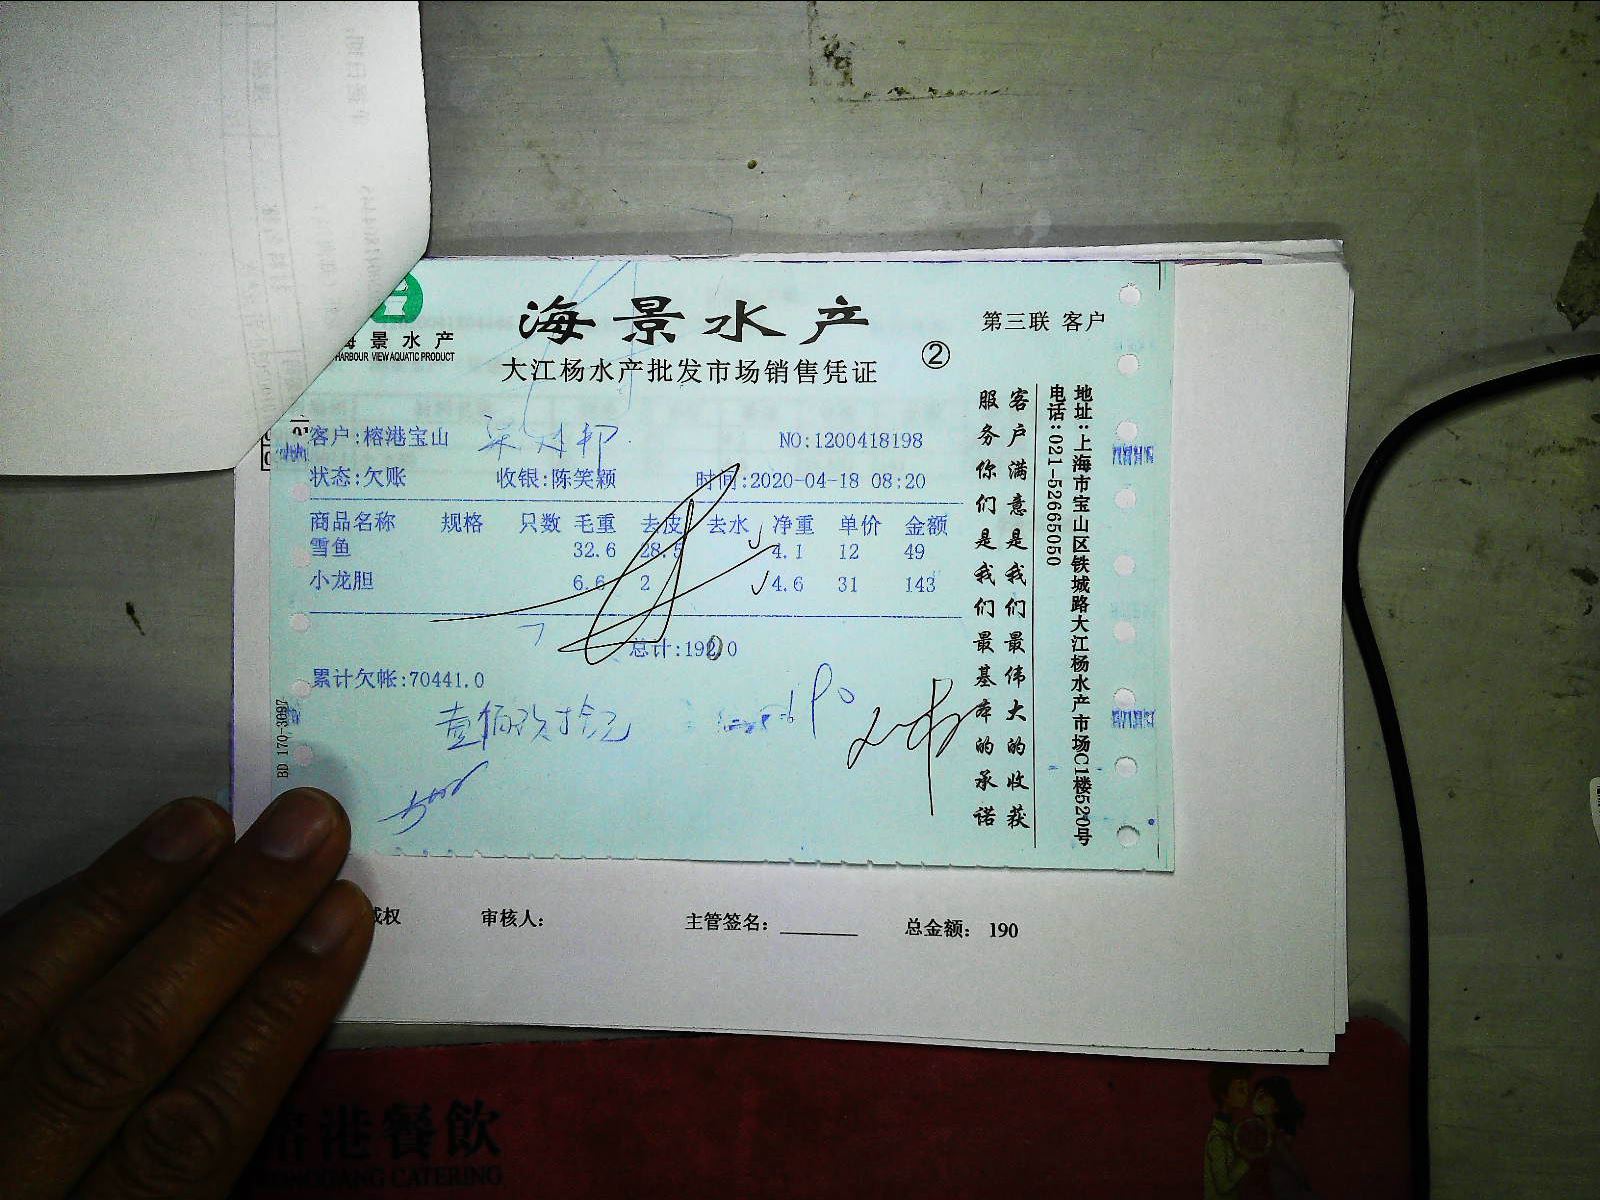 海景水产
HARBOUR VIEW AQUATIC PRODUCT
海景水产
大江杨水产批发市场销售凭证
②
第三联 客户
客户:榕港宝山
NO:1200418198
状态:欠账 收银:陈笑颖 时间:2020-04-18 08:20
商品名称 规格 只数 毛重 去皮 去水 净重 单价 金额
雪鱼 32.6 28.5 4.1 12 49
小龙胆 6.6 2 4.6 31 143
总计:192.0
累计欠帐:70441.0
壹佰玖拾元
190
客户满意是我们最伟大的收获
服务你们是我们最基本的承诺
地址:上海市宝山区铁城路大江杨水产市场C1楼520号
电话:021-52665050
BD 170-3097
权 审核人: 主管签名: 总金额: 190
榕港餐飲
RONGGANG CATERING